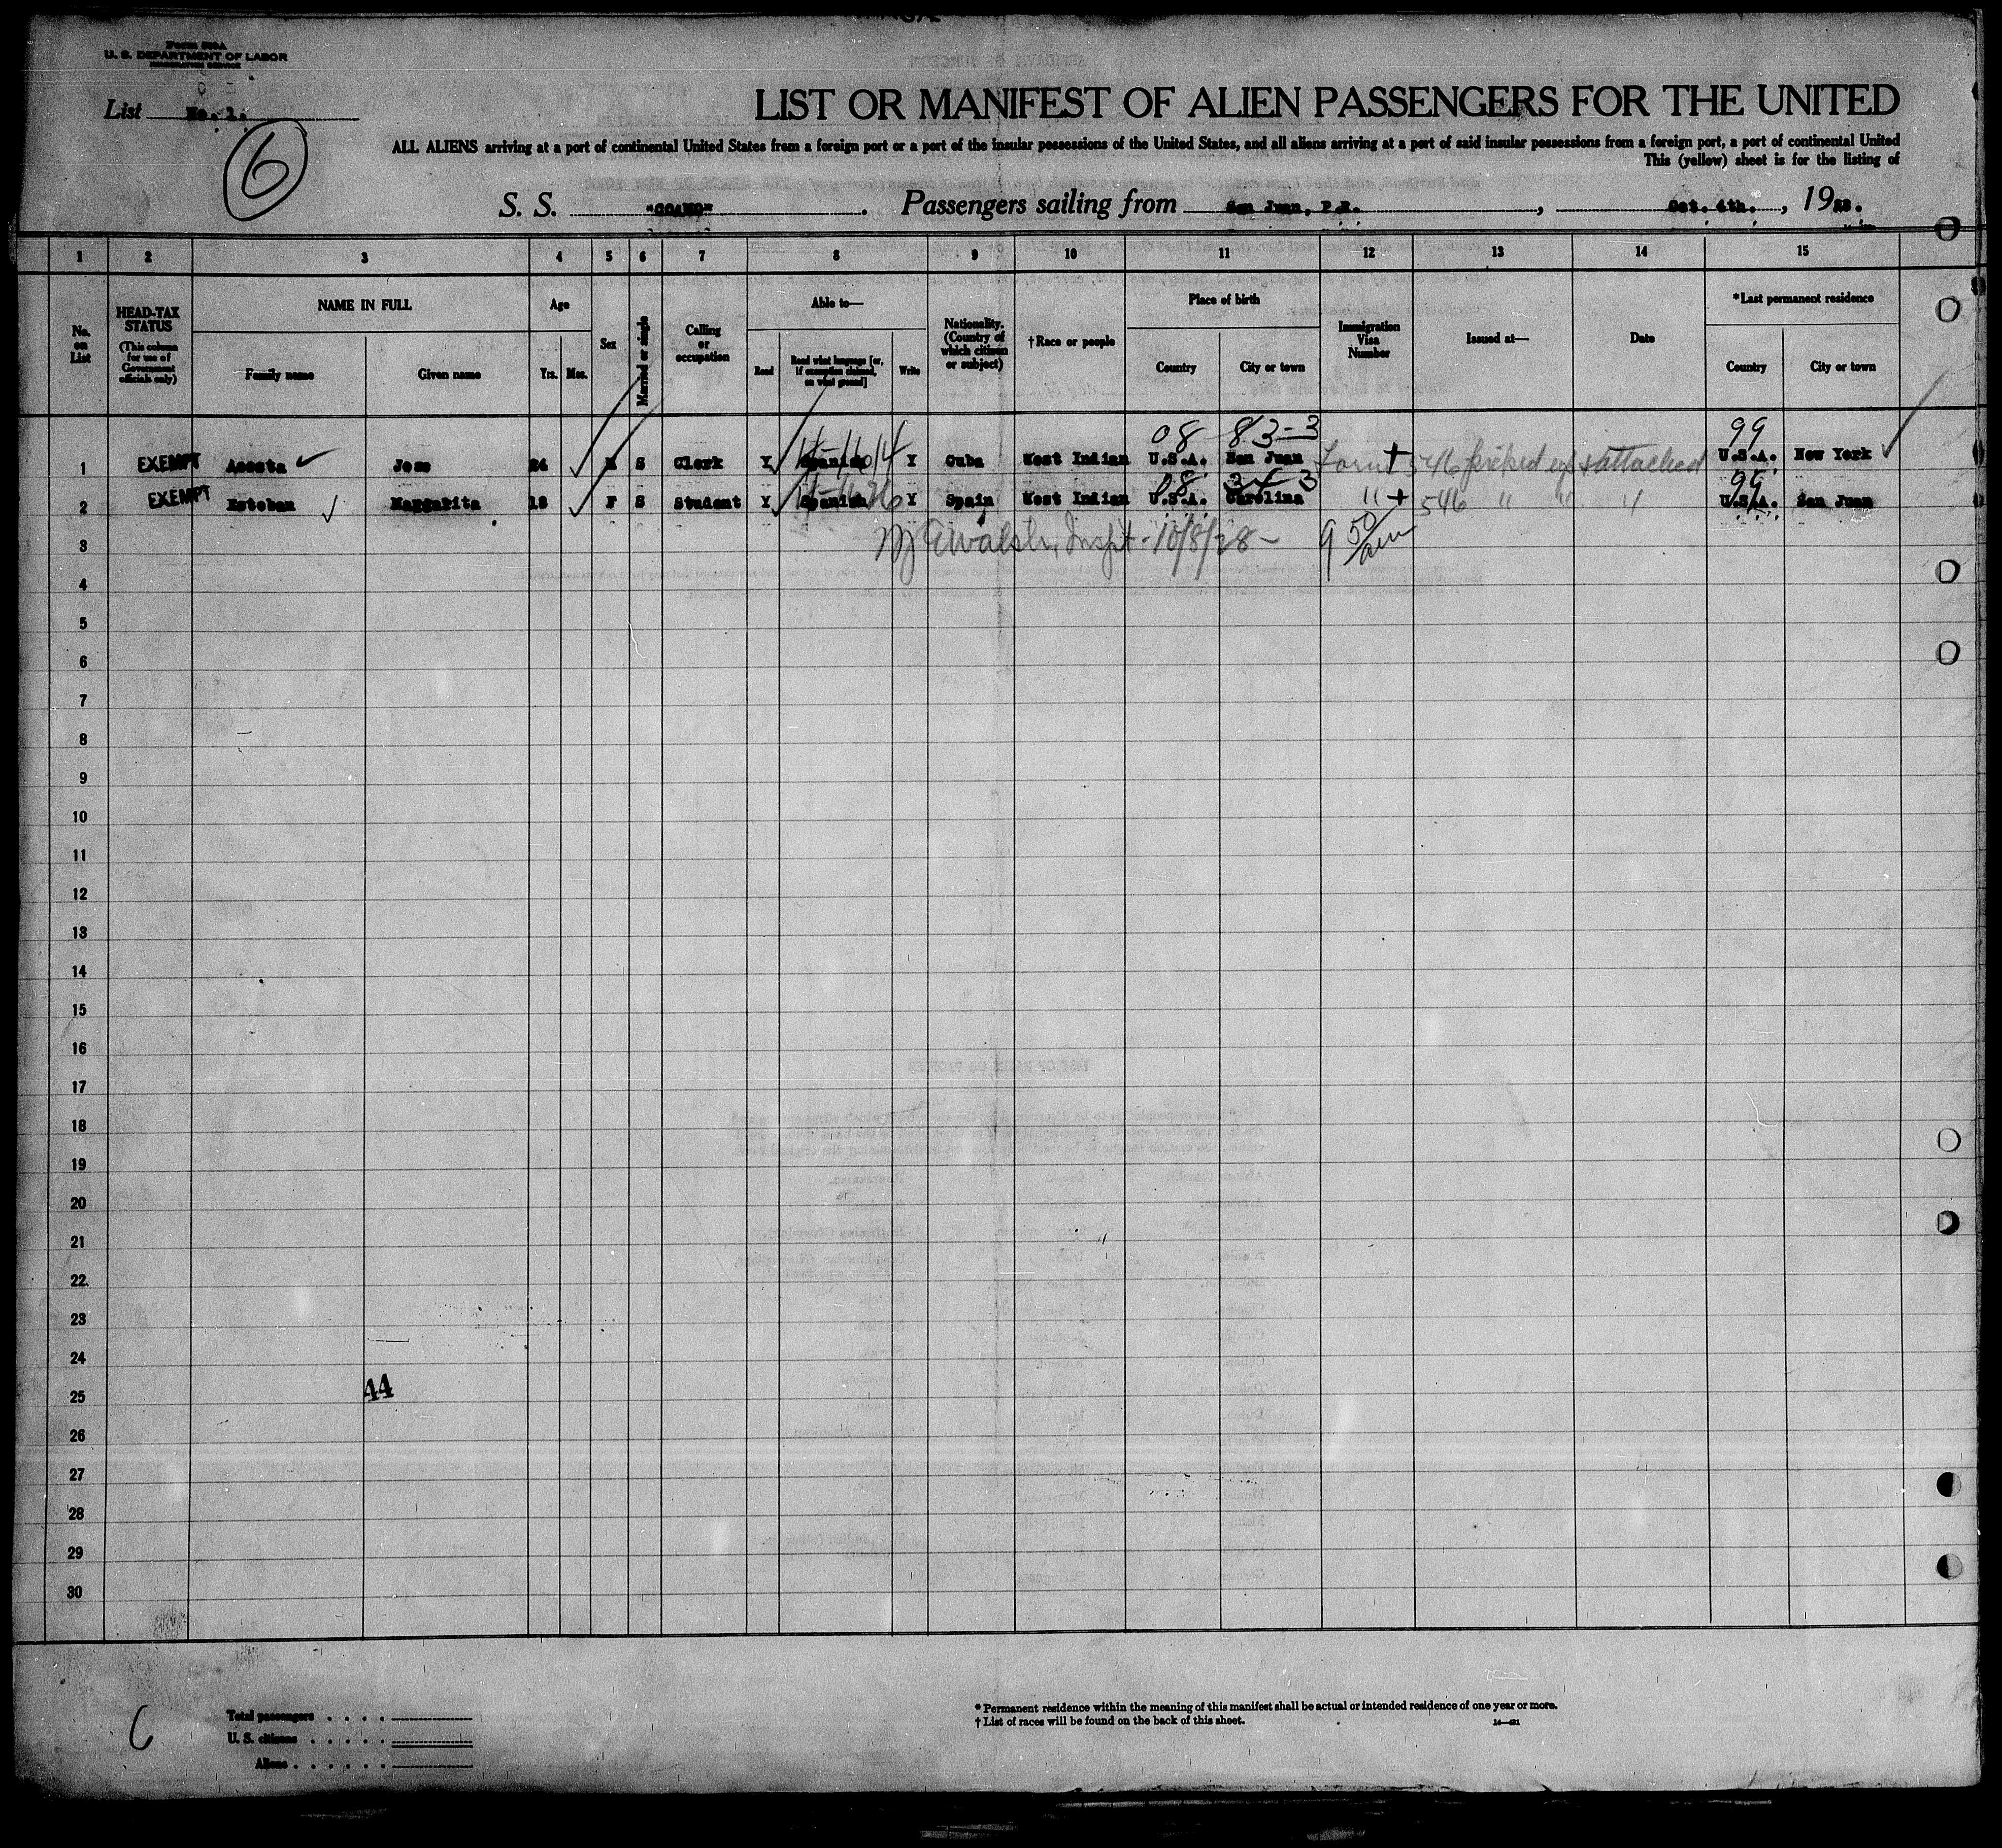 U. S. DEPARTMENT OF LABOR
List No. 1.
6
LIST OR MANIFEST OF ALIEN PASSENGERS FOR THE UNITED
ALL ALIENS arriving at a port of continental United States from a foreign port or a port of the insular possessions of the United States, and all aliens arriving at a port of said insular possessions from a foreign port, a port of continental United
This (yellow) sheet is for the listing of
S. S. "COAMO". Passengers sailing from San Juan, P.R., Oct. 4th., 1928.
1 2 3 4 5 6 7 8 9 10 11 12 13 14 15
No. on List
HEAD-TAX STATUS (This column for use of Government officials only)
NAME IN FULL
Family name Given name
Age
Yrs. Mos.
Sex
Married or single
Calling or occupation
Able to—
Read Read what language [or, if exemption claimed, on what ground] Write
Nationality. (Country of which citizen or subject)
†Race or people
Place of birth
Country City or town
Immigration Visa Number
Issued at—
Date
*Last permanent residence
Country City or town
08 83-3 99
1 EXEMPT Acosta Jose 24 M S Clerk Y Spanish Y Cuba West Indian U.S.A. San Juan Form 546 picked up & attached U.S.A. New York
08 34-3 99
2 EXEMPT Esteban Maggarita 18 F S Student Y Spanish Y Spain West Indian U.S.A. Carolina " 546 " " " U.S.A. San Juan
3 Walsh, Inspt - 10/8/28 - 9 50/am
4
5
6
7
8
9
10
11
12
13
14
15
16
17
18
19
20
21
22
23
24
25 44
26
27
28
29
30
6
Total passengers
U. S. citizens
Aliens
* Permanent residence within the meaning of this manifest shall be actual or intended residence of one year or more.
† List of races will be found on the back of this sheet.